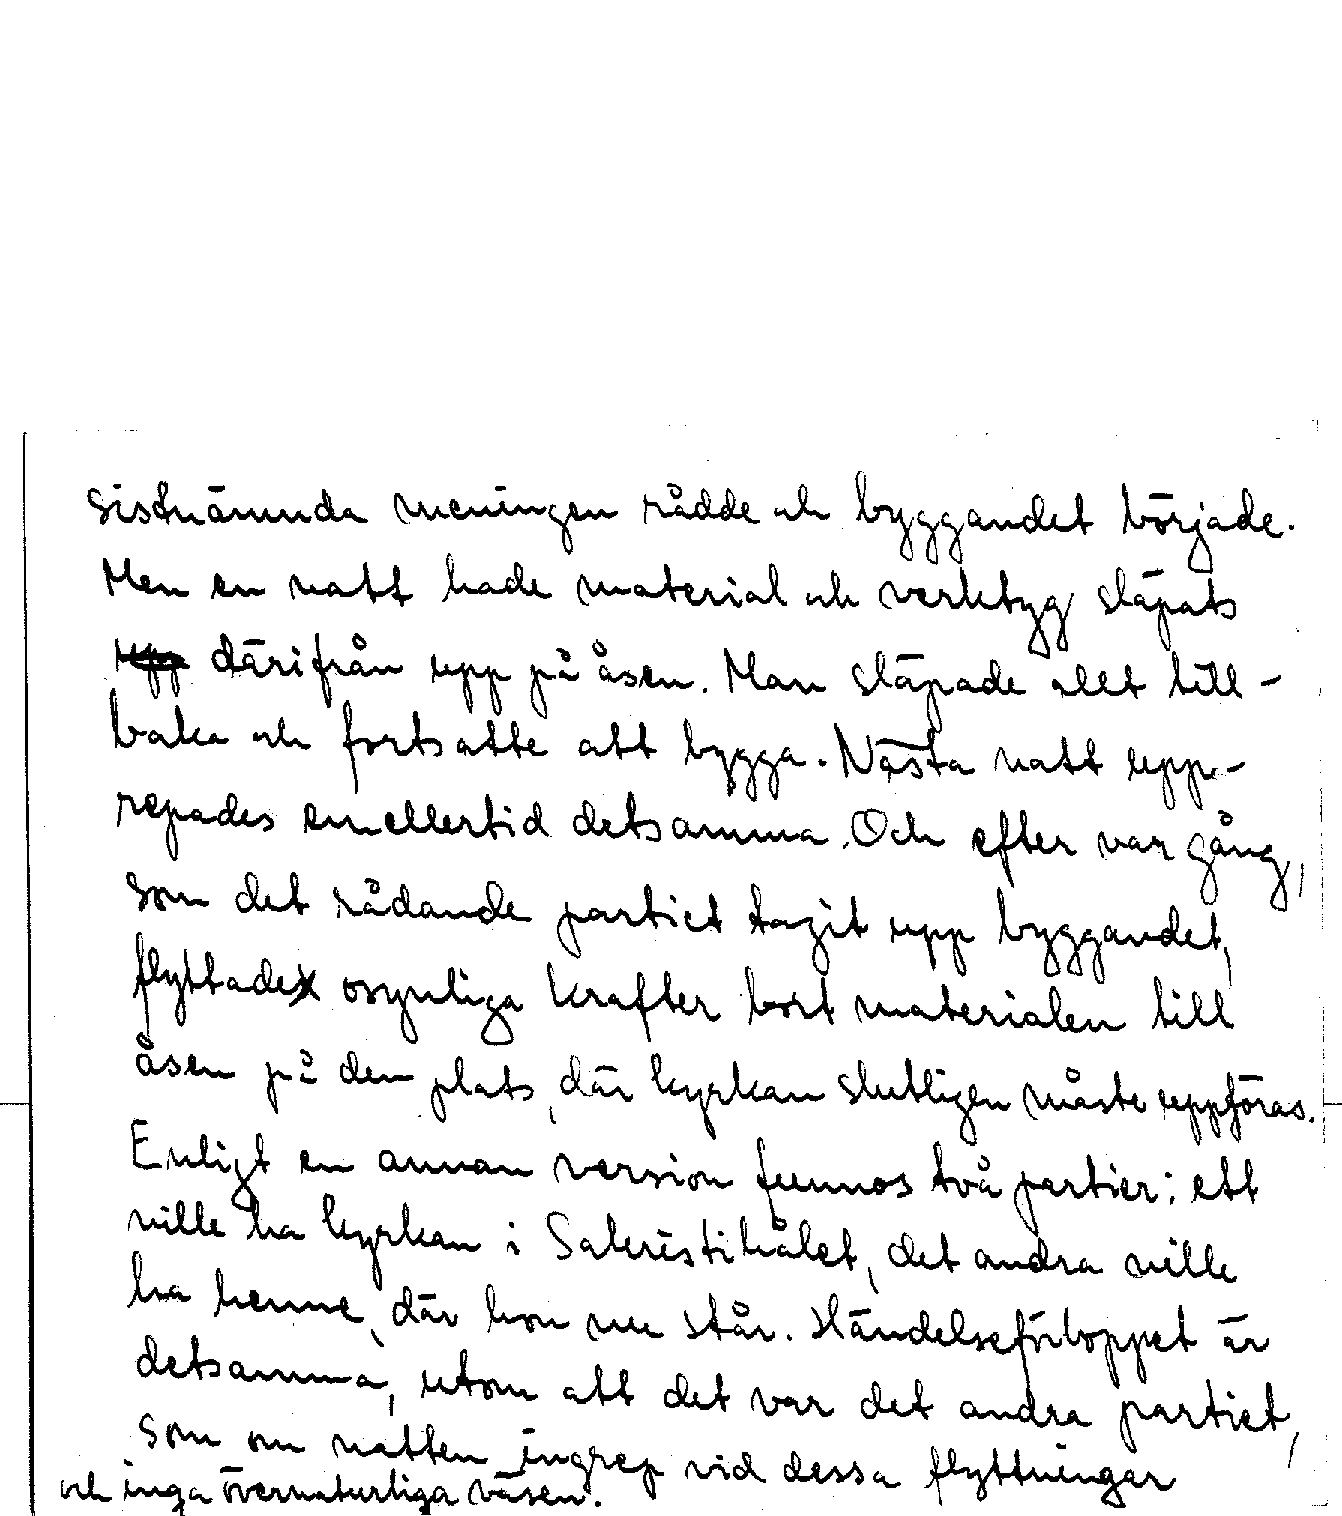 sistnämnda meningen rådde och byggandet började.
Men en natt hade material och verktyg släpats
upp därifrån upp på åsen. Man släpade allt till-
baka och fortsatte att bygga. Nästa natt upp-
repades emellertid detsamma. Och efter var gång,
som det rådande partiet tagit upp byggandet,
flyttade osynliga krafter bort materialen till
åsen på den plats, där kyrkan slutligen måste uppföras.
Enligt en annan version funnos två partier: ett
ville ha kyrkan i Sakristihålet, det andra ville
ha henne, där hon nu står. Händelseförloppet är
detsamma, utom att det var det andra partiet,
som om natten ingrep vid dessa flyttningar
och inga övernaturliga väsen.